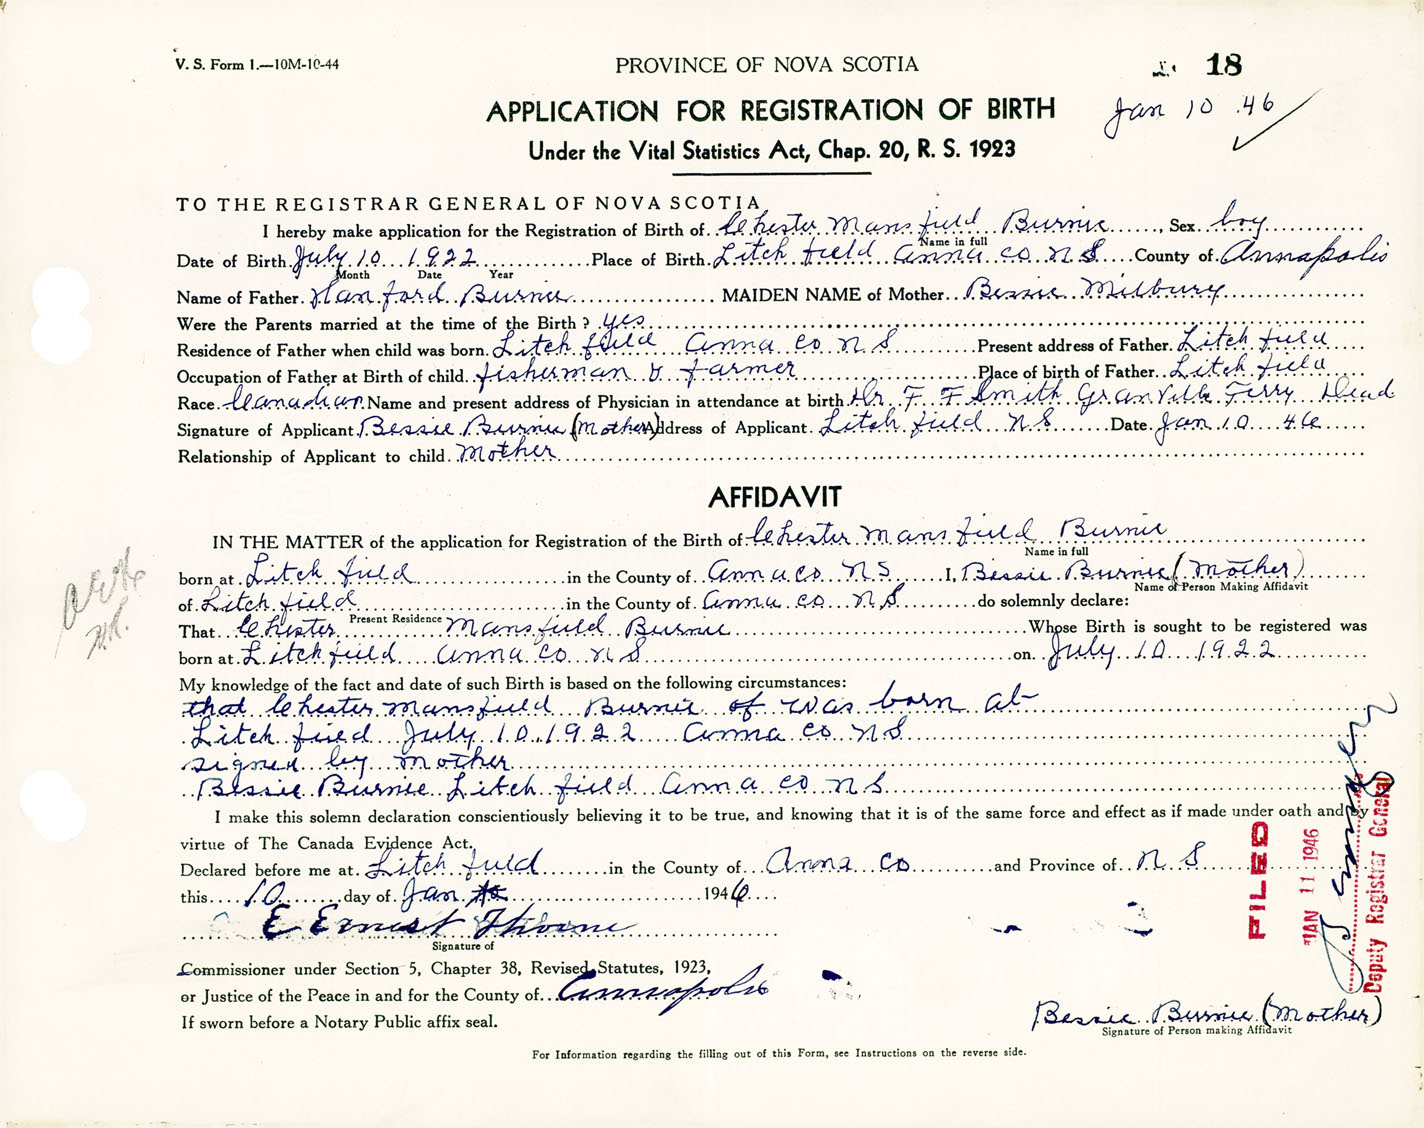 V. S. Form 1.—10M-10-44
PROVINCE OF NOVA SCOTIA
18
APPLICATION FOR REGISTRATION OF BIRTH
Jan 10 .46
Under the Vital Statistics Act, Chap. 20, R. S. 1923
TO THE REGISTRAR GENERAL OF NOVA SCOTIA
I hereby make application for the Registration of Birth of Chester Mansfield Burnie, Sex boy
Name in full
Date of Birth July 10 1922 Place of Birth Litchfield Anna co N S County of Annapolis
Month Date Year
Name of Father Hanford Burnie MAIDEN NAME of Mother Bessie Milbury
Were the Parents married at the time of the Birth? yes
Residence of Father when child was born Litchfield Anna co N S Present address of Father Litchfield
Occupation of Father at Birth of child fisherman & farmer Place of birth of Father Litchfield
Race Canadian Name and present address of Physician in attendance at birth Dr F F Smith Granville Ferry Dead
Signature of Applicant Bessie Burnie (Mother) Address of Applicant Litchfield N S Date Jan 10 46
Relationship of Applicant to child Mother
AFFIDAVIT
IN THE MATTER of the application for Registration of the Birth of Chester Mansfield Burnie
Name in full
born at Litchfield in the County of Anna co N S I, Bessie Burnie (Mother)
Name of Person Making Affidavit
of Litchfield in the County of Anna co N S do solemnly declare:
Present Residence
That Chester Mansfield Burnie Whose Birth is sought to be registered was
born at Litchfield Anna co N S on July 10 1922
My knowledge of the fact and date of such Birth is based on the following circumstances:
that Chester Mansfield Burnie of was born at
Litchfield July 10 1922 Anna co N S
signed by Mother
Bessie Burnie Litchfield Anna co N S
I make this solemn declaration conscientiously believing it to be true, and knowing that it is of the same force and effect as if made under oath and by
virtue of The Canada Evidence Act.
Declared before me at Litchfield in the County of Anna co and Province of N S
this 10 day of Jan 1946
E Ernest Thorne
Signature of
Commissioner under Section 5, Chapter 38, Revised Statutes, 1923,
or Justice of the Peace in and for the County of Annapolis
If sworn before a Notary Public affix seal.
Bessie Burnie (Mother)
Signature of Person making Affidavit
For Information regarding the filling out of this Form, see Instructions on the reverse side.
FILED
JAN 11 1946
Deputy Registrar General